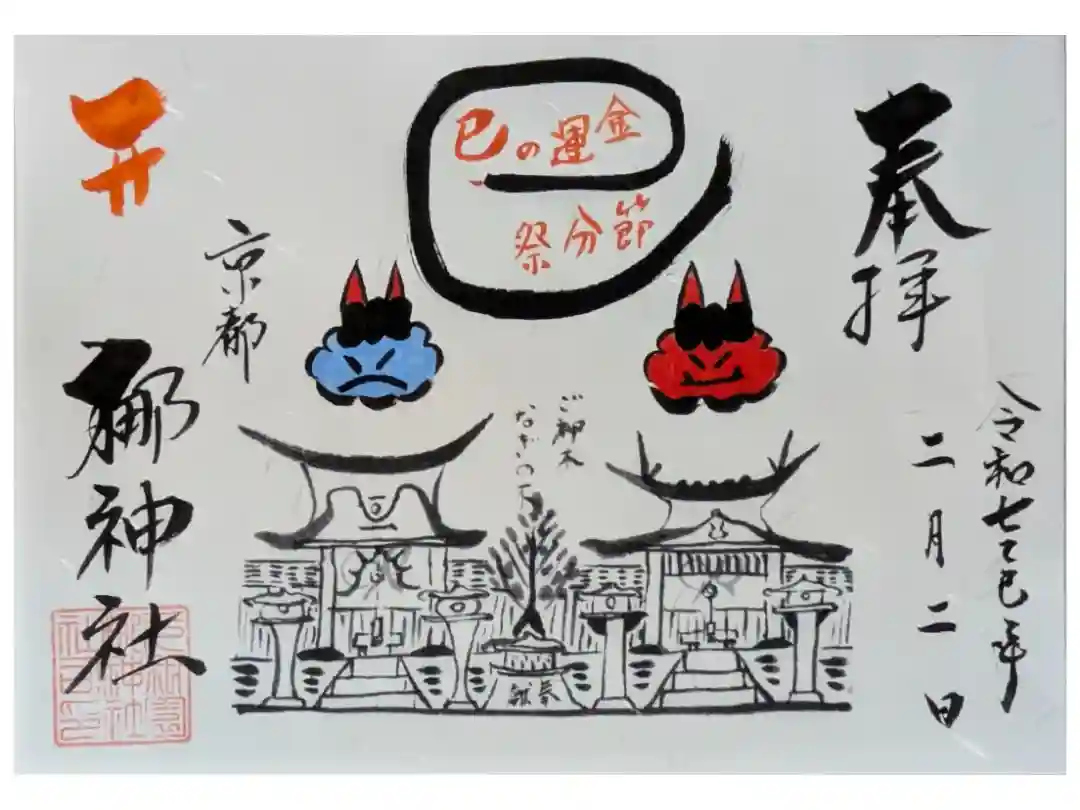 奉拝
令和七乙巳年
二月二日
金運の巳
節分祭
ご神木
なぎの
奉献
京都
梛神社